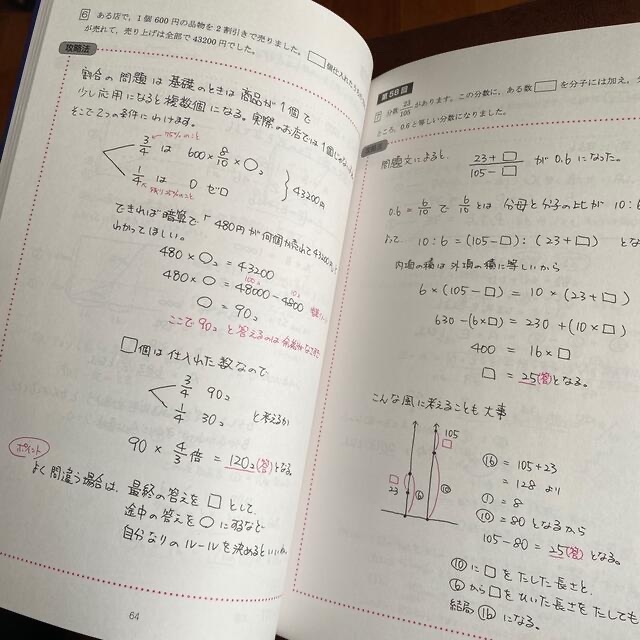 6 ある店で,1個600円の品物を2割引きで売りました。□個仕入れた
が売れて,売り上げは全部で43200円でした。
攻略法
割合の問題は基礎のときは商品が1個で
少し応用になると複数個になる。実際のお店では1個
そこで2つの条件にわけます。
75%のこと
3/4 は 600×8/10×○コ
1/4 は 0 ゼロ
残り25%のこと
43200円
できれば暗算で「480円が何個か売れて43200円
わかってほしい。
480×○コ=43200
480×○=48000-4800
100コ 10コ
○=90コ
ここで90コと答えるのは
□個は仕入れた数なので
3/4 90コ
1/4 30コ
と考えるか
90×4/3倍=120コ(答)となる。
ポイント
よく間違う場合は、最終の答えを□として、
途中の答えを○にするなど
自分なりのルールを決めるといい
64
第58回
7 分数23/105があります。この分数に,ある数□を分子には加え,
ところ,0.6と等しい分数になりました。
攻略法
問題文によると、
23+□/105-□ が0.6になった。
0.6=6/10で6/10とは分母と分子の比が10:6
よって 10:6=(105-□):(23+□)とな
内項の積は外項の積に等しいから
6×(105-□)=10×(23+□)
630-(6×□)=230+(10×□)
400=16×□
□=25(答)となる。
こんな風に考えることも大事
105
□
□
23
⑥
⑩
⑯=105+23
=128より
①=8
⑩=80となるから
105-80=25(答)となる。
⑩に□をたした長さと、
⑥から□をひいた長さをたしても
結局⑯になる。